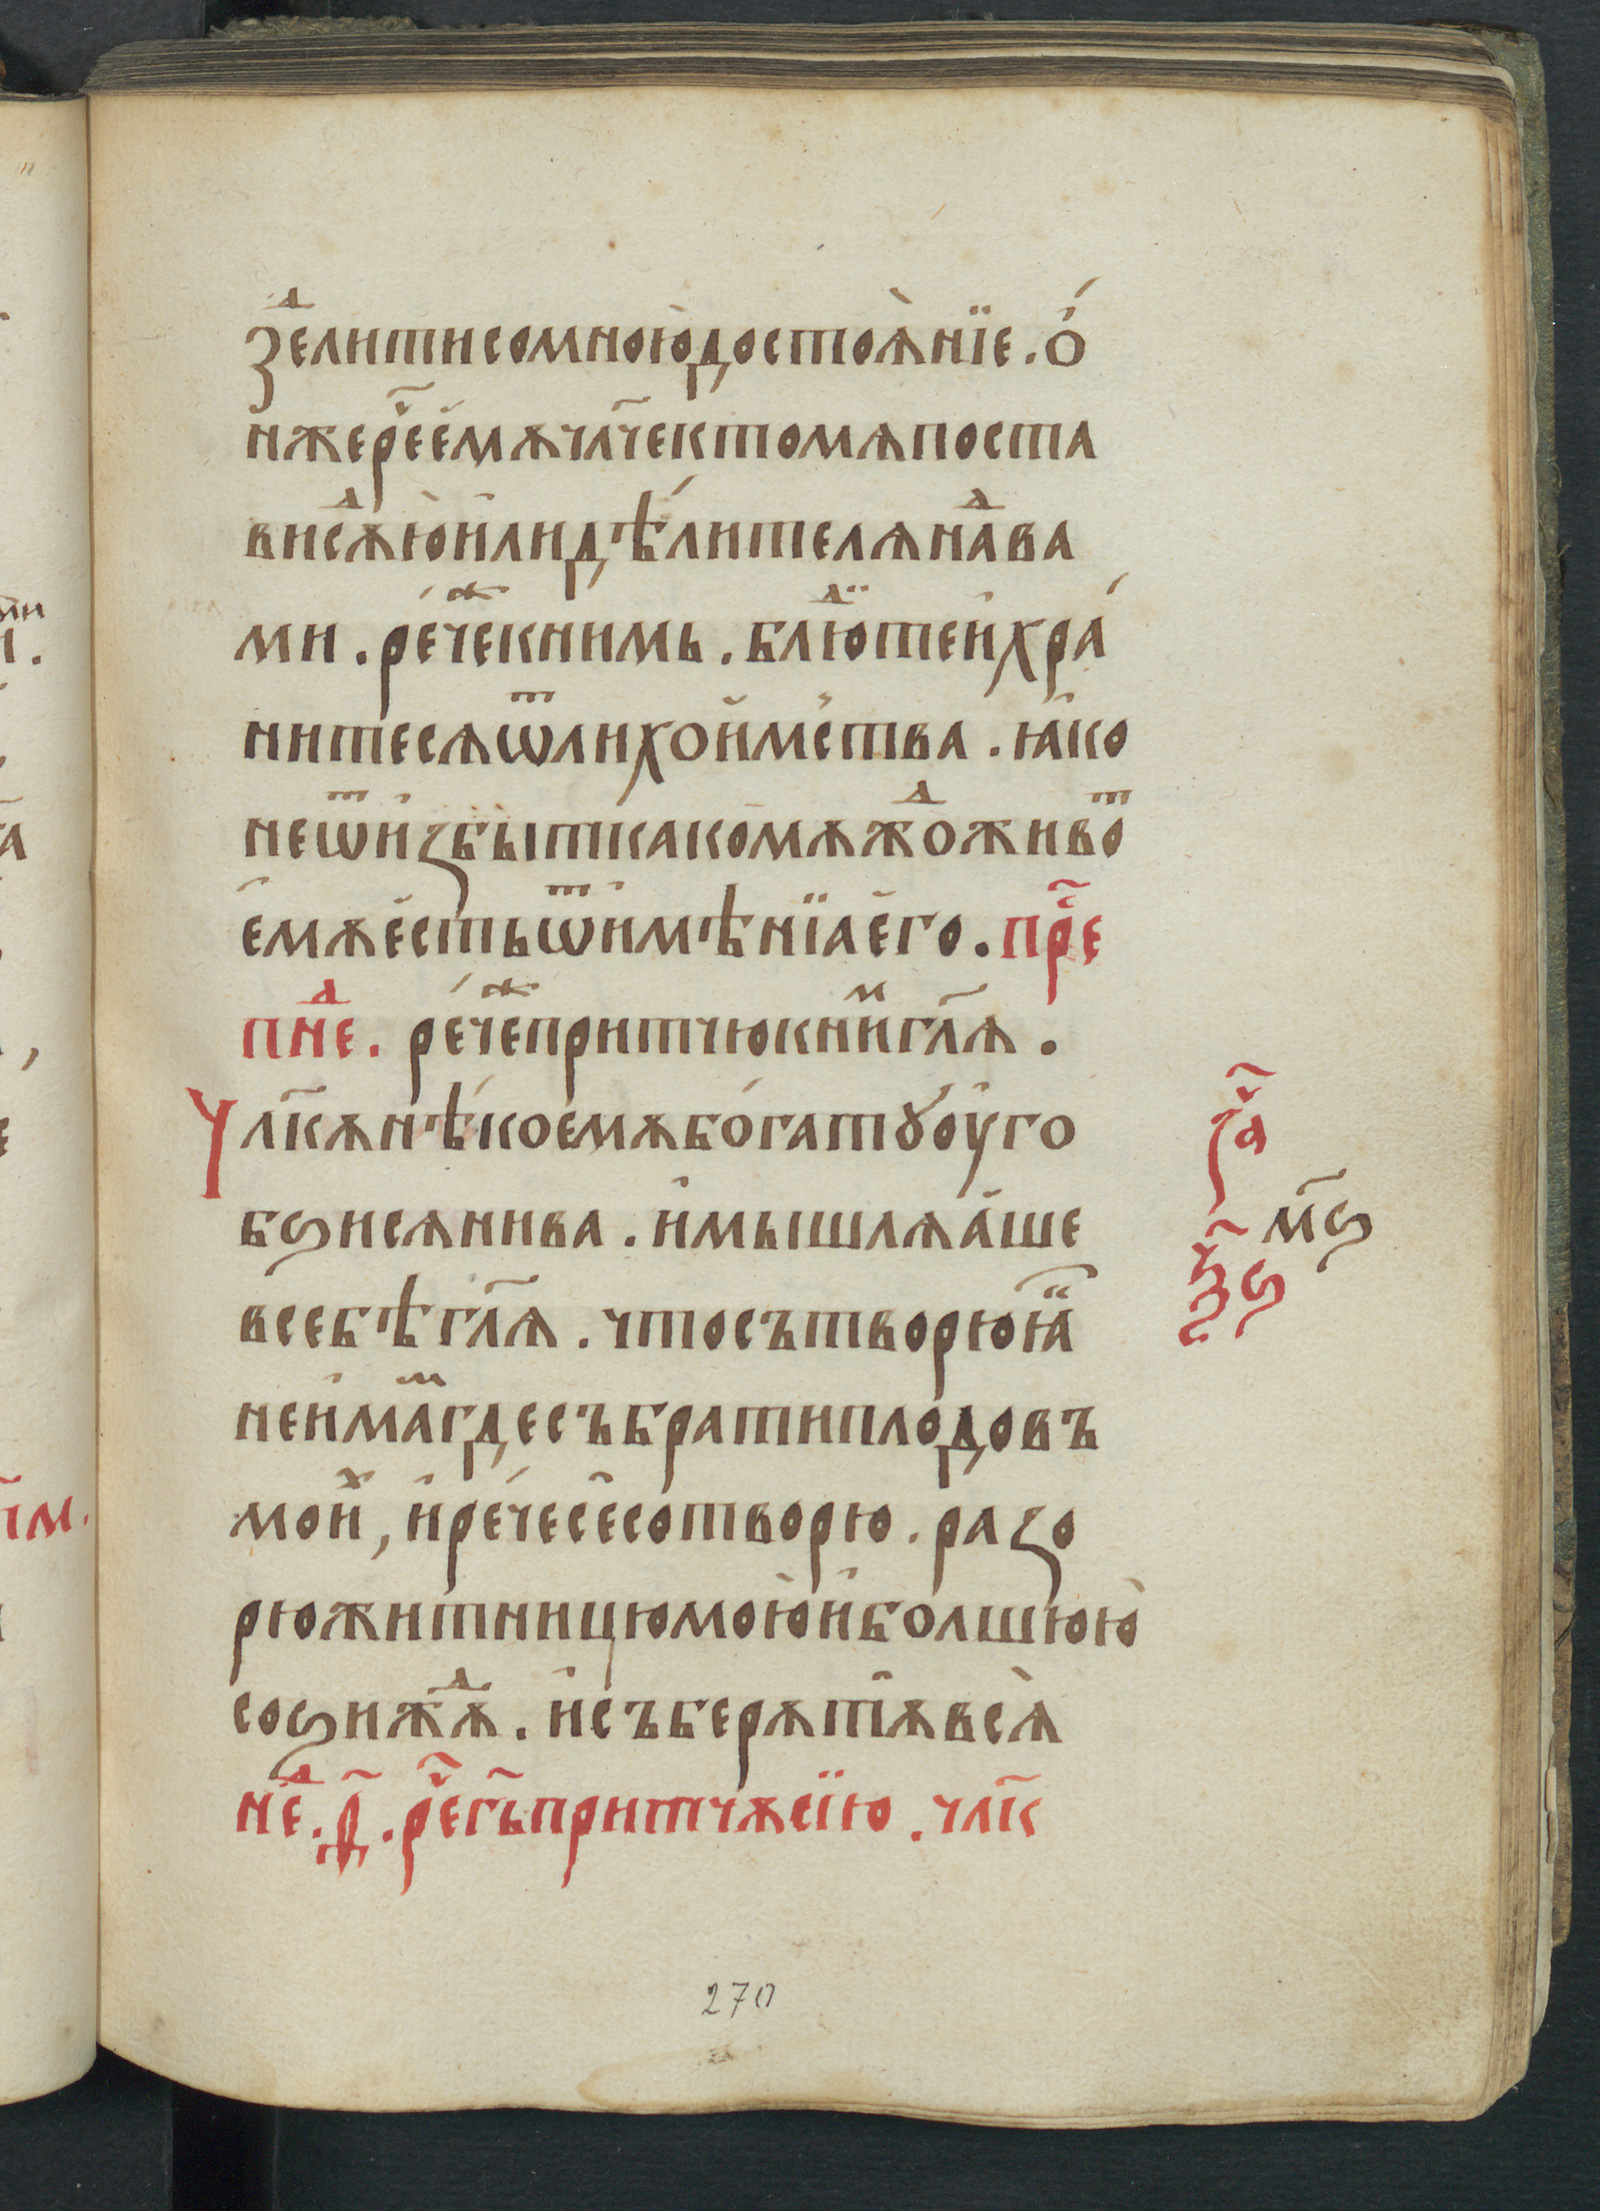 зⷣелитисомноюдостоѧнїе. о
нжере҃емѫчл҃чектомѧпоста
висѫⷣюилидѣлителѧнаⷣва
ми. речежⷦ҇нимь. блюⷣтеихра
нитесѧѿлихоимс҃тва. ꙗко
неѿизбыткакомѫжⷣоживоⷮ
емѫестьѿимѣнїаего. пр҃е
пнⷣе. речежⷦ҇притчюкниⷨгл҃ѧ.
Чл҃кѫнѣкоемѫбогатꙋоуго
бѕисѧнива. имышлѧаше
всебѣгл҃ѧ. чтосътворюꙗ
неимаⷨгдесъбратиплодовъ
моиⷯ, иречесесотворю. разо
рюжитницюмоюиболшюю
соѕижⷣѫ. исъберѫтѫвсѧ
неⷣ. д҃. ре҃гь҃притчѫсїю. чл҃к
за҃
м҃ѕ
ѯ҃ѕ
270